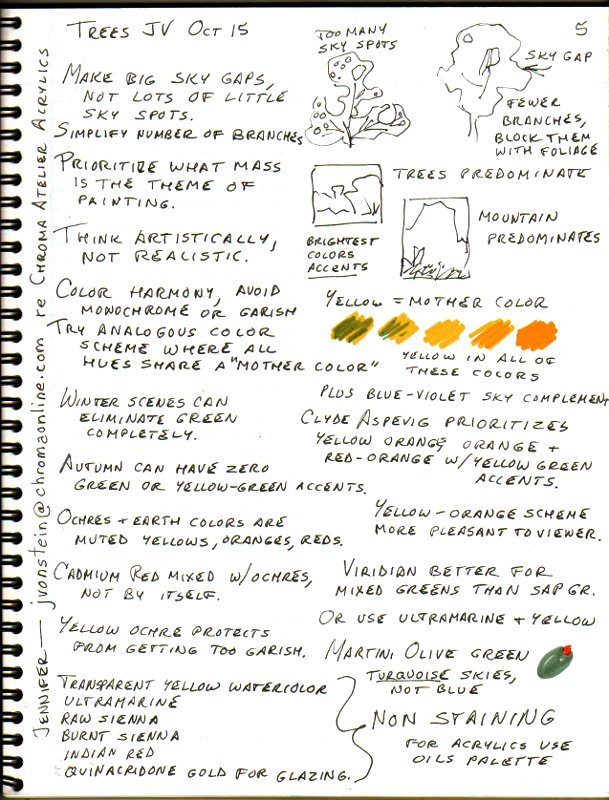 TREES JV OCT 15
5
JENNIFER — jvonstein@chromaonline.com re CHROMA ATELIER ACRYLICS
TOO MANY
SKY SPOTS
SKY GAP
FEWER
BRANCHES,
BLOCK THEM
WITH FOLIAGE
MAKE BIG SKY GAPS,
NOT LOTS OF LITTLE
SKY SPOTS.
SIMPLIFY NUMBER OF BRANCHES
PRIORITIZE WHAT MASS
IS THE THEME OF
PAINTING.
TREES PREDOMINATE
MOUNTAIN
PREDOMINATES
THINK ARTISTICALLY,
NOT REALISTIC.
BRIGHTEST
COLORS
ACCENTS
COLOR HARMONY, AVOID
MONOCHROME OR GARISH
TRY ANALOGOUS COLOR
SCHEME WHERE ALL
HUES SHARE A "MOTHER COLOR"
YELLOW = MOTHER COLOR
YELLOW IN ALL OF
THESE COLORS
PLUS BLUE-VIOLET SKY COMPLEMENT
WINTER SCENES CAN
ELIMINATE GREEN
COMPLETELY.
CLYDE ASPEVIG PRIORITIZES
YELLOW ORANGE, ORANGE +
RED-ORANGE W/YELLOW GREEN
ACCENTS.
AUTUMN CAN HAVE ZERO
GREEN OR YELLOW-GREEN ACCENTS.
YELLOW-ORANGE SCHEME
MORE PLEASANT TO VIEWER.
OCHRES + EARTH COLORS ARE
MUTED YELLOWS, ORANGES, REDS.
CADMIUM RED MIXED W/OCHRES,
NOT BY ITSELF.
VIRIDIAN BETTER FOR
MIXED GREENS THAN SAP GR.
OR USE ULTRAMARINE + YELLOW
YELLOW OCHRE PROTECTS
FROM GETTING TOO GARISH.
MARTINI OLIVE GREEN
TURQUOISE SKIES,
NOT BLUE
TRANSPARENT YELLOW WATERCOLOR
ULTRAMARINE
RAW SIENNA
BURNT SIENNA
INDIAN RED
QUINACRIDONE GOLD FOR GLAZING.
NON STAINING
FOR ACRYLICS USE
OILS PALETTE